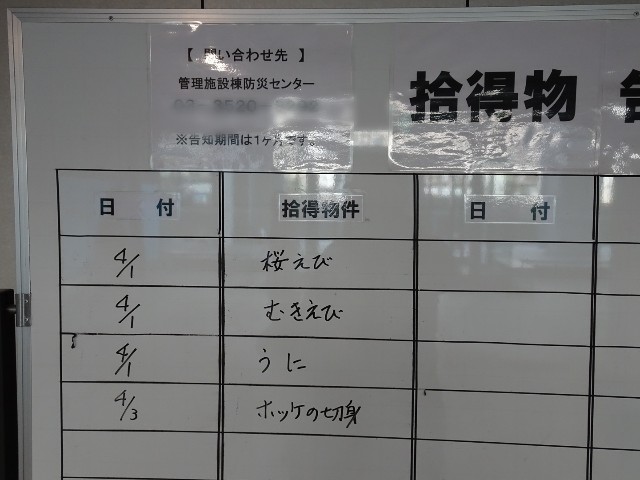 【 問い合わせ先 】
管理施設棟防災センター
※告知期間は1ヶ月です。
拾得物
日 付
拾得物件
日 付
4/1
桜えび
4/1
むきえび
4/1
うに
4/3
ホッケの切身